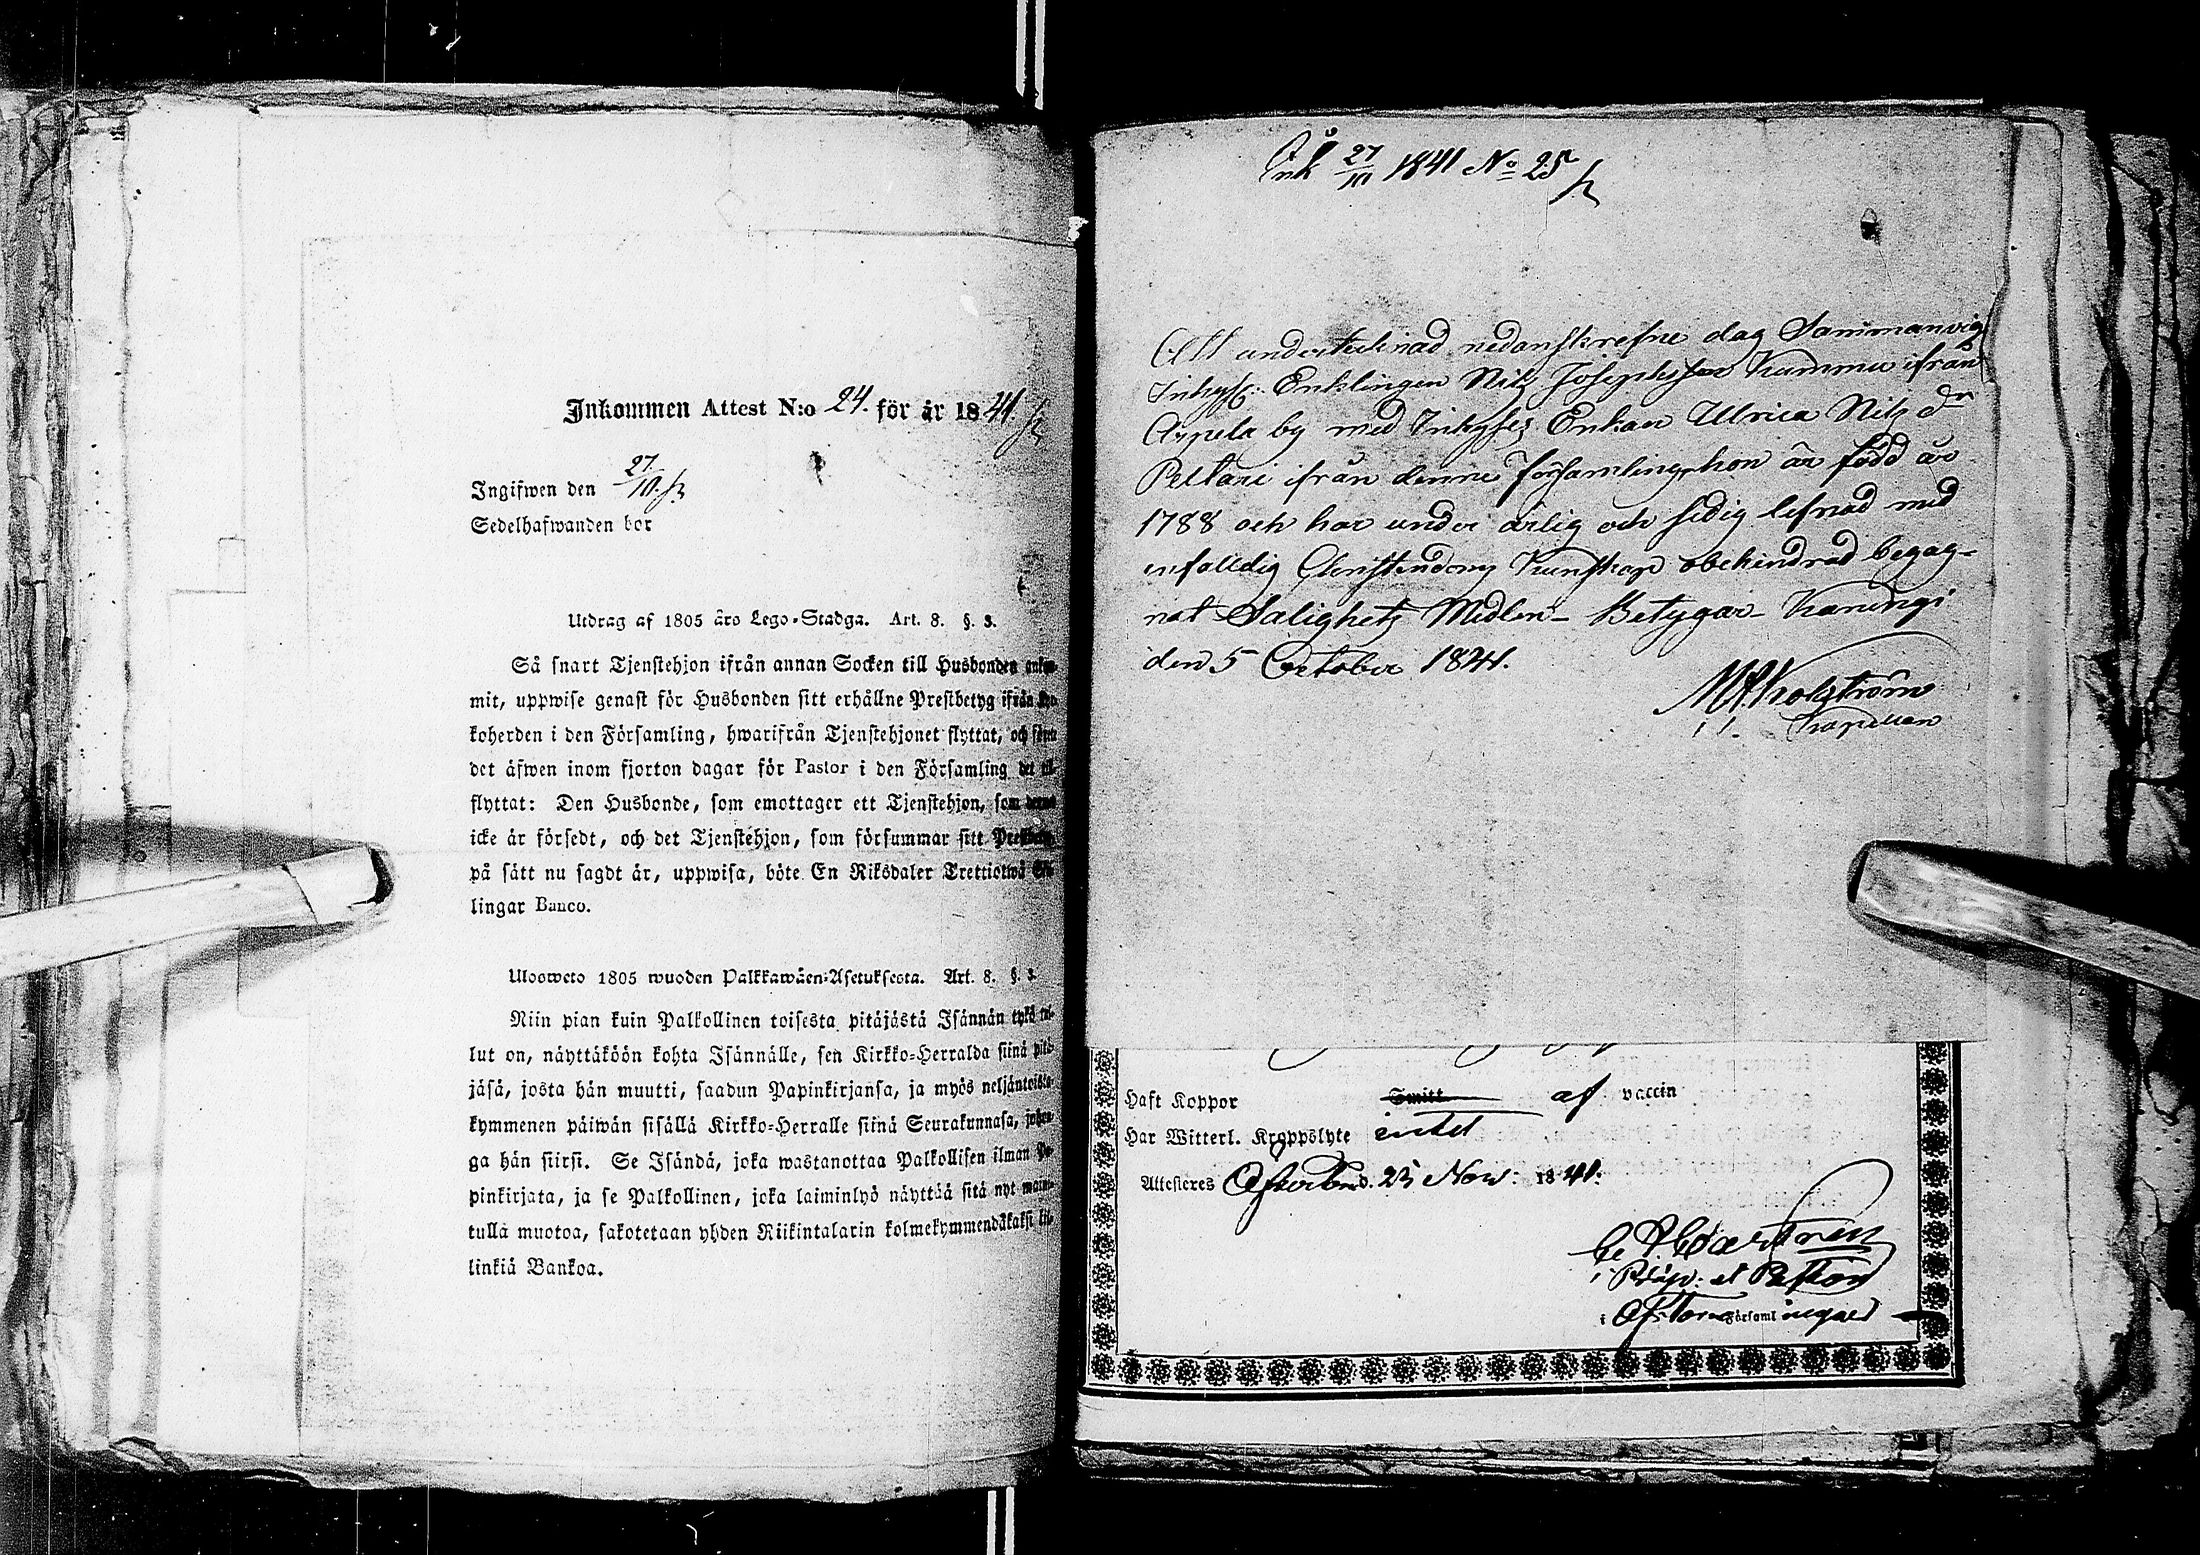 Inkommen Attest N:o 24. för år 1841.
Ingifwen den 27/10.
Sedelhafwanden bor
Utdrag af 1805 års Lego-Stadga. Art. 8. §. 3.
Så snart Tjenstehjon ifrån annan Socken till Husbonden
mit, uppwise genast för Husbonden sitt erhållne Prestbetyg ifrån
koherden i den Församling, hwarifrån Tjenstehjonet flyttat, och
det äfwen inom fjorton dagar för Pastor i den Församling det
flyttat: Den Husbonde, som emottager ett Tjenstehjon, som
icke är försedt, och det Tjenstehjon, som försummar sitt
på sätt nu sagdt är, uppwisa, böte En Riksdaler Trettiotwå
lingar Banco.
Uloosweto 1805 wuoden Palkkawäen-Asetuksesta. Art. 8. §. 3.
Niin pian kuin Palkollinen toisesta pitäjästä Isännän tykö
lut on, näyttäköön kohta Isännälle, sen Kirkko-Herralda siinä
jäsä, josta hän muutti, saadun Papinkirjansa, ja myös
kymmenen päiwän sisällä Kirkko-Herralle siinä Seurakunnasa,
ga hän siirsi. Se Isändä, joka wastanottaa Palkollisen ilman
pinkirjata, ja se Palkollinen, joka laiminlyö näyttää sitä nyt
tullä muotoa, sakotetaan yhden Riikintalarin kolmekymmendäkaksi
linkiä Bankoa.
Ink 27/10 1841 No 25
Att undertecknad nedanskrefne dag Sammanvigt
Inhyses Enklingen Nils Josephsson Kummu ifrån
Arpela by med Inhyses Enkan Ulrica Nils dr
Peltari ifrån denne församling, hon är född år
1788 och har under ärlig och sedig lefnad med
enfalldig Christendoms Kunskap obehindrad begag-
nat Salighets Medlen - Betygar - Karungi
den 5 October 1841.
Kapellan
Haft Koppor Smitt af vaccin
Har Witterl. Kroppslyte intet
Attesteres 25 Nov: 1841.
C A Castrén
Präp: et Pastor
i Församl